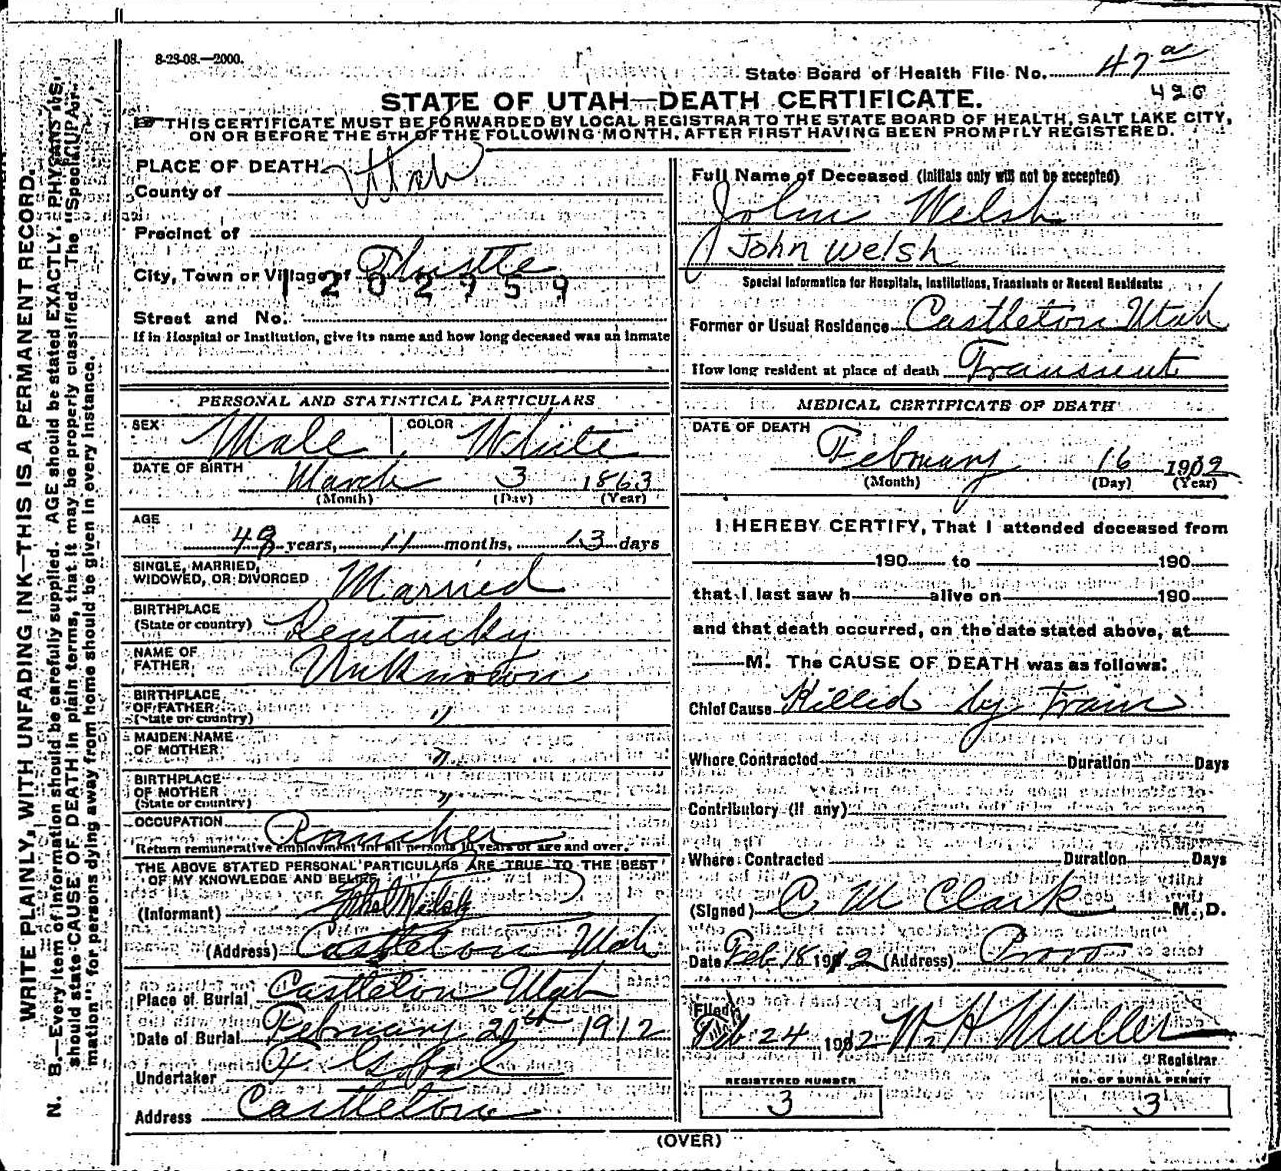 8-23-08.—2000.
State Board of Health File No. 47a
420
STATE OF UTAH—DEATH CERTIFICATE.
THIS CERTIFICATE MUST BE FORWARDED BY LOCAL REGISTRAR TO THE STATE BOARD OF HEALTH, SALT LAKE CITY,
ON OR BEFORE THE 5TH OF THE FOLLOWING MONTH, AFTER FIRST HAVING BEEN PROMPTLY REGISTERED.
WRITE PLAINLY, WITH UNFADING INK—THIS IS A PERMANENT RECORD.
N. B.—Every item of information should be carefully supplied. AGE should be stated EXACTLY. PHYSICIANS
should state CAUSE OF DEATH in plain terms, that it may be properly classified. The "Special
mation" for persons dying away from home should be given in every instance.
PLACE OF DEATH
County of Utah
Precinct of
City, Town or Village of Thistle
1202959
Street and No.
If in Hospital or Institution, give its name and how long deceased was an inmate
PERSONAL AND STATISTICAL PARTICULARS
SEX Male COLOR White
DATE OF BIRTH March 3 1863
(Month) (Day) (Year)
AGE
48 years, 11 months, 13 days
SINGLE, MARRIED,
WIDOWED, OR DIVORCED Married
BIRTHPLACE
(State or country) Kentucky
NAME OF
FATHER Unknown
BIRTHPLACE
OF FATHER
(State or country) "
MAIDEN NAME
OF MOTHER "
BIRTHPLACE
OF MOTHER
(State or country) "
OCCUPATION Rancher
Return remunerative employment for all persons 10 years of age and over.
THE ABOVE STATED PERSONAL PARTICULARS ARE TRUE TO THE BEST
OF MY KNOWLEDGE AND BELIEF
(Informant) Welsh
(Address) Castleton Utah
Place of Burial Castleton Utah
Date of Burial February 20th 1912
Undertaker
Address Castleton
Full Name of Deceased (Initials only will not be accepted)
John Welsh
John Welsh
Special Information for Hospitals, Institutions, Transients or Recent Residents:
Former or Usual Residence Castleton Utah
How long resident at place of death Transient
MEDICAL CERTIFICATE OF DEATH
DATE OF DEATH
February 16 1912
(Month) (Day) (Year)
I HEREBY CERTIFY, That I attended deceased from
190 to 190
that I last saw h alive on 190
and that death occurred, on the date stated above, at
M. The CAUSE OF DEATH was as follows:
Chief Cause Killed by Train
Where Contracted Duration Days
Contributory (If any)
Where Contracted Duration Days
(Signed) C M Clark M. D.
Date Feb 18 1912 (Address) Provo
Filed
Feb 24 1912 W. H Muller
Registrar
REGISTERED NUMBER
3
NO. OF BURIAL PERMIT
3
(OVER)